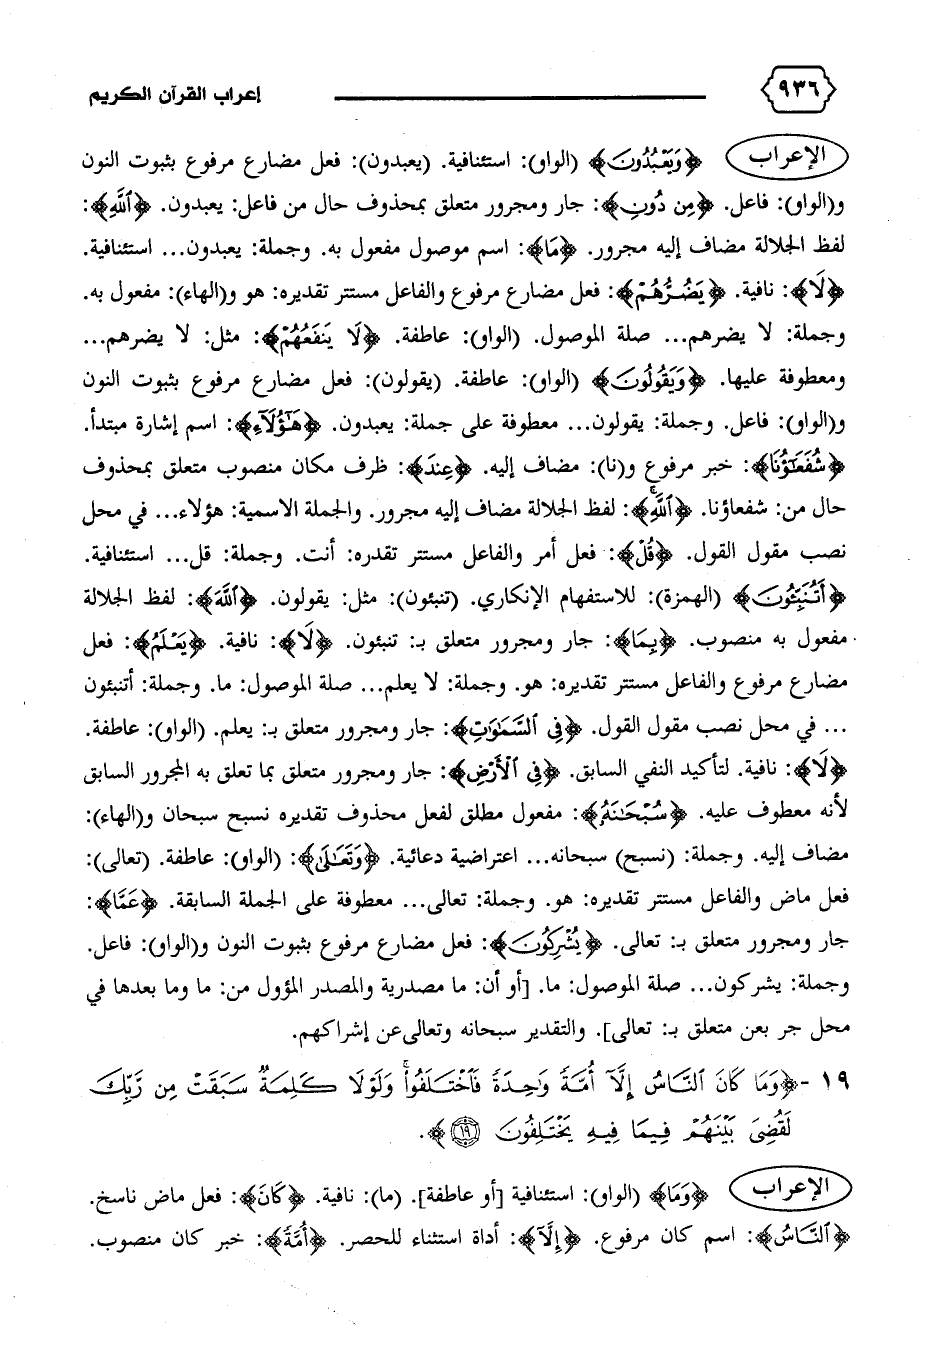 ٩٣٦
إعراب القرآن الكريم
الإعراب ﴿وَيَعْبُدُونَ﴾ (الواو): استئنافية. (يعبدون): فعل مضارع مرفوع بثبوت النون
و(الواو): فاعل. ﴿مِن دُونِ﴾: جار ومجرور متعلق بمحذوف حال من فاعل: يعبدون. ﴿ٱللَّهِ﴾:
لفظ الجلالة مضاف إليه مجرور. ﴿مَا﴾: اسم موصول مفعول به. وجملة: يعبدون... استئنافية.
﴿لَا﴾: نافية. ﴿يَضُرُّهُمْ﴾: فعل مضارع مرفوع والفاعل مستتر تقديره: هو و(الهاء): مفعول به.
وجملة: لا يضرهم... صلة الموصول. (الواو): عاطفة. ﴿لَا يَنفَعُهُمْ﴾: مثل: لا يضرهم...
ومعطوفة عليها. ﴿وَيَقُولُونَ﴾ (الواو): عاطفة. (يقولون): فعل مضارع مرفوع بثبوت النون
و(الواو): فاعل. وجملة: يقولون... معطوفة على جملة: يعبدون. ﴿هَٰٓؤُلَآءِ﴾: اسم إشارة مبتدأ.
﴿شُفَعَٰٓؤُنَا﴾: خبر مرفوع و(نا): مضاف إليه. ﴿عِندَ﴾: ظرف مكان منصوب متعلق بمحذوف
حال من: شفعاؤنا. ﴿ٱللَّهِۚ﴾: لفظ الجلالة مضاف إليه مجرور. والجملة الاسمية: هؤلاء... في محل
نصب مقول القول. ﴿قُلْ﴾: فعل أمر والفاعل مستتر تقدره: أنت. وجملة: قل... استئنافية.
﴿أَتُنَبِّئُونَ﴾ (الهمزة): للاستفهام الإنكاري. (تنبئون): مثل: يقولون. ﴿ٱللَّهَ﴾: لفظ الجلالة
مفعول به منصوب. ﴿بِمَا﴾: جار ومجرور متعلق بـ: تنبئون. ﴿لَا﴾: نافية. ﴿يَعْلَمُ﴾: فعل
مضارع مرفوع والفاعل مستتر تقديره: هو. وجملة: لا يعلم... صلة الموصول: ما. وجملة: أتنبئون
... في محل نصب مقول القول. ﴿فِي ٱلسَّمَٰوَٰتِ﴾: جار ومجرور متعلق بـ: يعلم. (الواو): عاطفة.
﴿لَا﴾: نافية. لتأكيد النفي السابق. ﴿فِي ٱلْأَرْضِ﴾: جار ومجرور متعلق بما تعلق به المجرور السابق
لأنه معطوف عليه. ﴿سُبْحَٰنَهُۥ﴾: مفعول مطلق لفعل محذوف تقديره نسبح سبحان و(الهاء):
مضاف إليه. وجملة: (نسبح) سبحانه... اعتراضية دعائية. ﴿وَتَعَٰلَىٰ﴾: (الواو): عاطفة. (تعالى):
فعل ماض والفاعل مستتر تقديره: هو. وجملة: تعالى... معطوفة على الجملة السابقة. ﴿عَمَّا﴾:
جار ومجرور متعلق بـ: تعالى. ﴿يُشْرِكُونَ﴾: فعل مضارع مرفوع بثبوت النون و(الواو): فاعل.
وجملة: يشركون... صلة الموصول: ما. [أو أن: ما مصدرية والمصدر المؤول من: ما وما بعدها في
محل جر بعن متعلق بـ: تعالى]. والتقدير سبحانه وتعالى عن إشراكهم.
١٩ - ﴿وَمَا كَانَ ٱلنَّاسُ إِلَّآ أُمَّةً وَٰحِدَةً فَٱخْتَلَفُوا۟ۚ وَلَوْلَا كَلِمَةٌ سَبَقَتْ مِن رَّبِّكَ
لَقُضِيَ بَيْنَهُمْ فِيمَا فِيهِ يَخْتَلِفُونَ ١٩﴾.
الإعراب ﴿وَمَا﴾ (الواو): استئنافية [أو عاطفة]. (ما): نافية. ﴿كَانَ﴾: فعل ماض ناسخ.
﴿ٱلنَّاسُ﴾: اسم كان مرفوع. ﴿إِلَّآ﴾: أداة استثناء للحصر. ﴿أُمَّةً﴾: خبر كان منصوب.